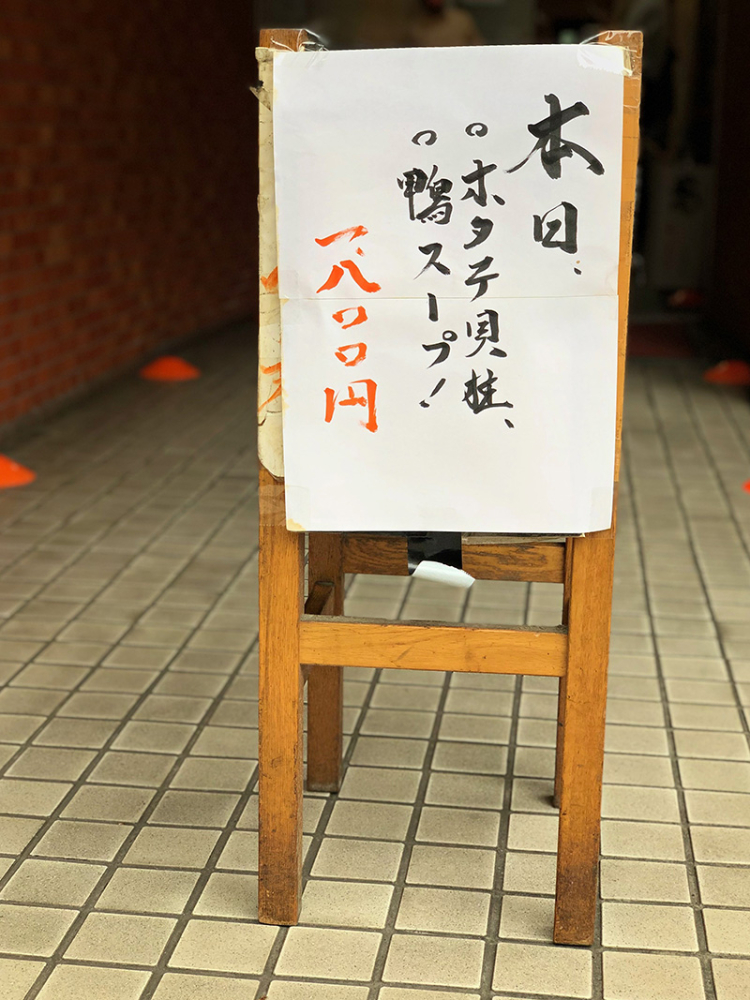 本日、
○ホタテ貝柱、
○鴨スープ!
一、八〇〇円